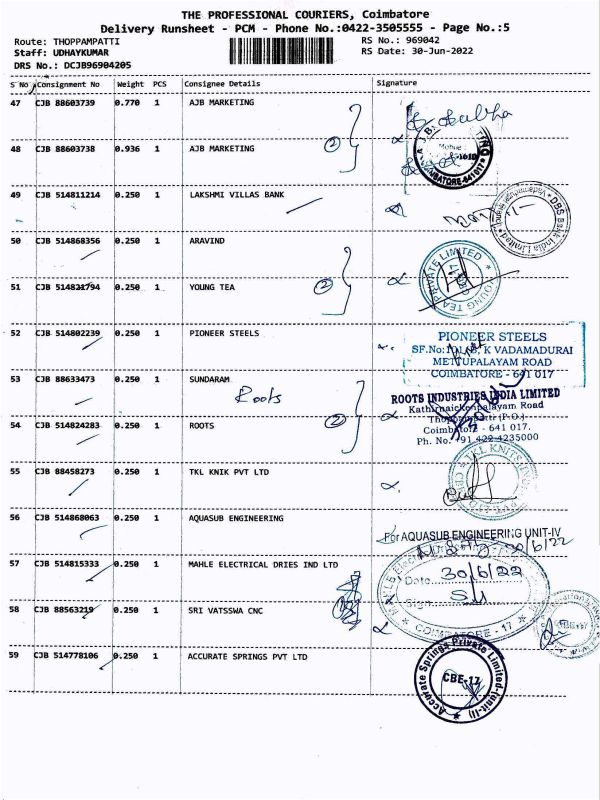 THE PROFESSIONAL COURIERS, Coimbatore
Delivery Runsheet - PCM - Phone No.:0422-3505555 - Page No.:5
Route: THOPPAMPATTI RS No.: 969042
Staff: UDHAYKUMAR RS Date: 30-Jun-2022
DRS No.: DCJB96904205
S No Consignment No Weight PCS Consignee Details Signature
47 CJB 88603739 0.770 1 AJB MARKETING
48 CJB 88603738 0.936 1 AJB MARKETING
2
COIMBATORE-641017
49 CJB 514811214 0.250 1 LAKSHMI VILLAS BANK
DBS Bank India Limited
50 CJB 514868356 0.250 1 ARAVIND
51 CJB 514821794 0.250 1 YOUNG TEA
2
YOUNG TEA PRIVATE LIMITED
52 CJB 514802239 0.250 1 PIONEER STEELS
PIONEER STEELS
K VADAMADURAI
METTUPALAYAM ROAD
COIMBATORE - 641 017
53 CJB 88633473 0.250 1 SUNDARAM
Roots
ROOTS INDUSTRIES INDIA LIMITED
Kathirnaickenpalayam Road
Thoppampatti (P.O.)
Coimbatore - 641 017.
Ph. No. +91 422 4235000
54 CJB 514824283 0.250 1 ROOTS
2
55 CJB 88458273 0.250 1 TKL KNIK PVT LTD
TKL KNITS
56 CJB 514868063 0.250 1 AQUASUB ENGINEERING
For AQUASUB ENGINEERING UNIT-IV
30/6/22
57 CJB 514815333 0.250 1 MAHLE ELECTRICAL DRIES IND LTD
Date. 30/6/22
Sign.
COIMBATORE - 17
58 CJB 88563219 0.250 1 SRI VATSSWA CNC
CBE-17
59 CJB 514778106 0.250 1 ACCURATE SPRINGS PVT LTD
Accurate Springs Private Limited-(unit-II)
CBE-17